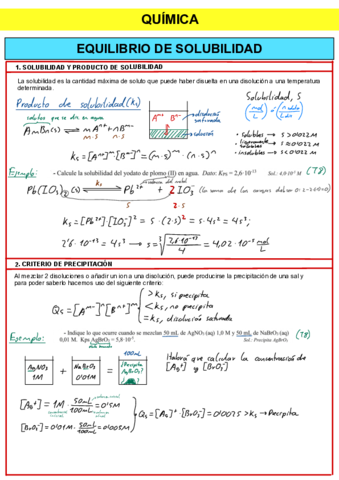 QUÍMICA
EQUILIBRIO DE SOLUBILIDAD
1. SOLUBILIDAD Y PRODUCTO DE SOLUBILIDAD
La solubilidad es la cantidad máxima de soluto que puede haber disuelta en una disolución a una temperatura
determinada.
Producto de solubilidad (ks)
solutos que se dis en agua
AmBn(s) ⇌ mAⁿ⁺ + nBᵐ⁻
m·s n·s
ks = [Aⁿ⁺]ᵐ·[Bᵐ⁻]ⁿ = (m·s)ᵐ·(n·s)ⁿ
Aⁿ⁺ Bᵐ⁻
disolución
saturada
Solubilidad, S
- solubles → s > 0'02 M
- insolubles → s < 0'01 M
Ejemplo: - Calcule la solubilidad del yodato de plomo (II) en agua. Dato: Ks = 2,6·10⁻¹³ Sol.: 4,0·10⁻⁵ M (T8)
Pb(IO₃)₂(s) ⇌ Pb²⁺ + 2IO₃⁻
s 2·s
ks = [Pb²⁺]·[IO₃⁻]² = s·(2·s)² = s·4s² = 4s³;
2'6·10⁻¹³ = 4s³ → s = ∛(2,6·10⁻¹³/4) = 4,02·10⁻⁵ mol/L
2. CRITERIO DE PRECIPITACIÓN
Al mezclar 2 disoluciones o añadir un ion a una disolución, puede producirse la precipitación de una sal y
para poder saberlo hacemos uso del siguiente criterio:
> ks, si precipita
Qs = [Aⁿ⁺]ᵐ[Bᵐ⁻]ⁿ < ks, no precipita
= ks, disolución saturada
Ejemplo: - Indique lo que ocurre cuando se mezclan 50 mL de AgNO₃ (aq) 1,0 M y 50 mL de NaBrO₃ (aq) (T8)
0,01 M. Kps AgBrO₃ = 5,8·10⁻⁵. Sol.: Precipita AgBrO₃
100mL
AgNO₃ 1M + NaBrO₃ 0'01M = ¿Precipita AgBrO₃?
Habrá que calcular la concentración de
[Ag⁺] y [BrO₃⁻]
[Ag⁺] = 1M · 50mL/100mL = 0'5M
Qs = [Ag⁺]·[BrO₃⁻] = 0'0025 > ks → Precipita
[BrO₃⁻] = 0'01M · 50mL/100mL = 0'005M